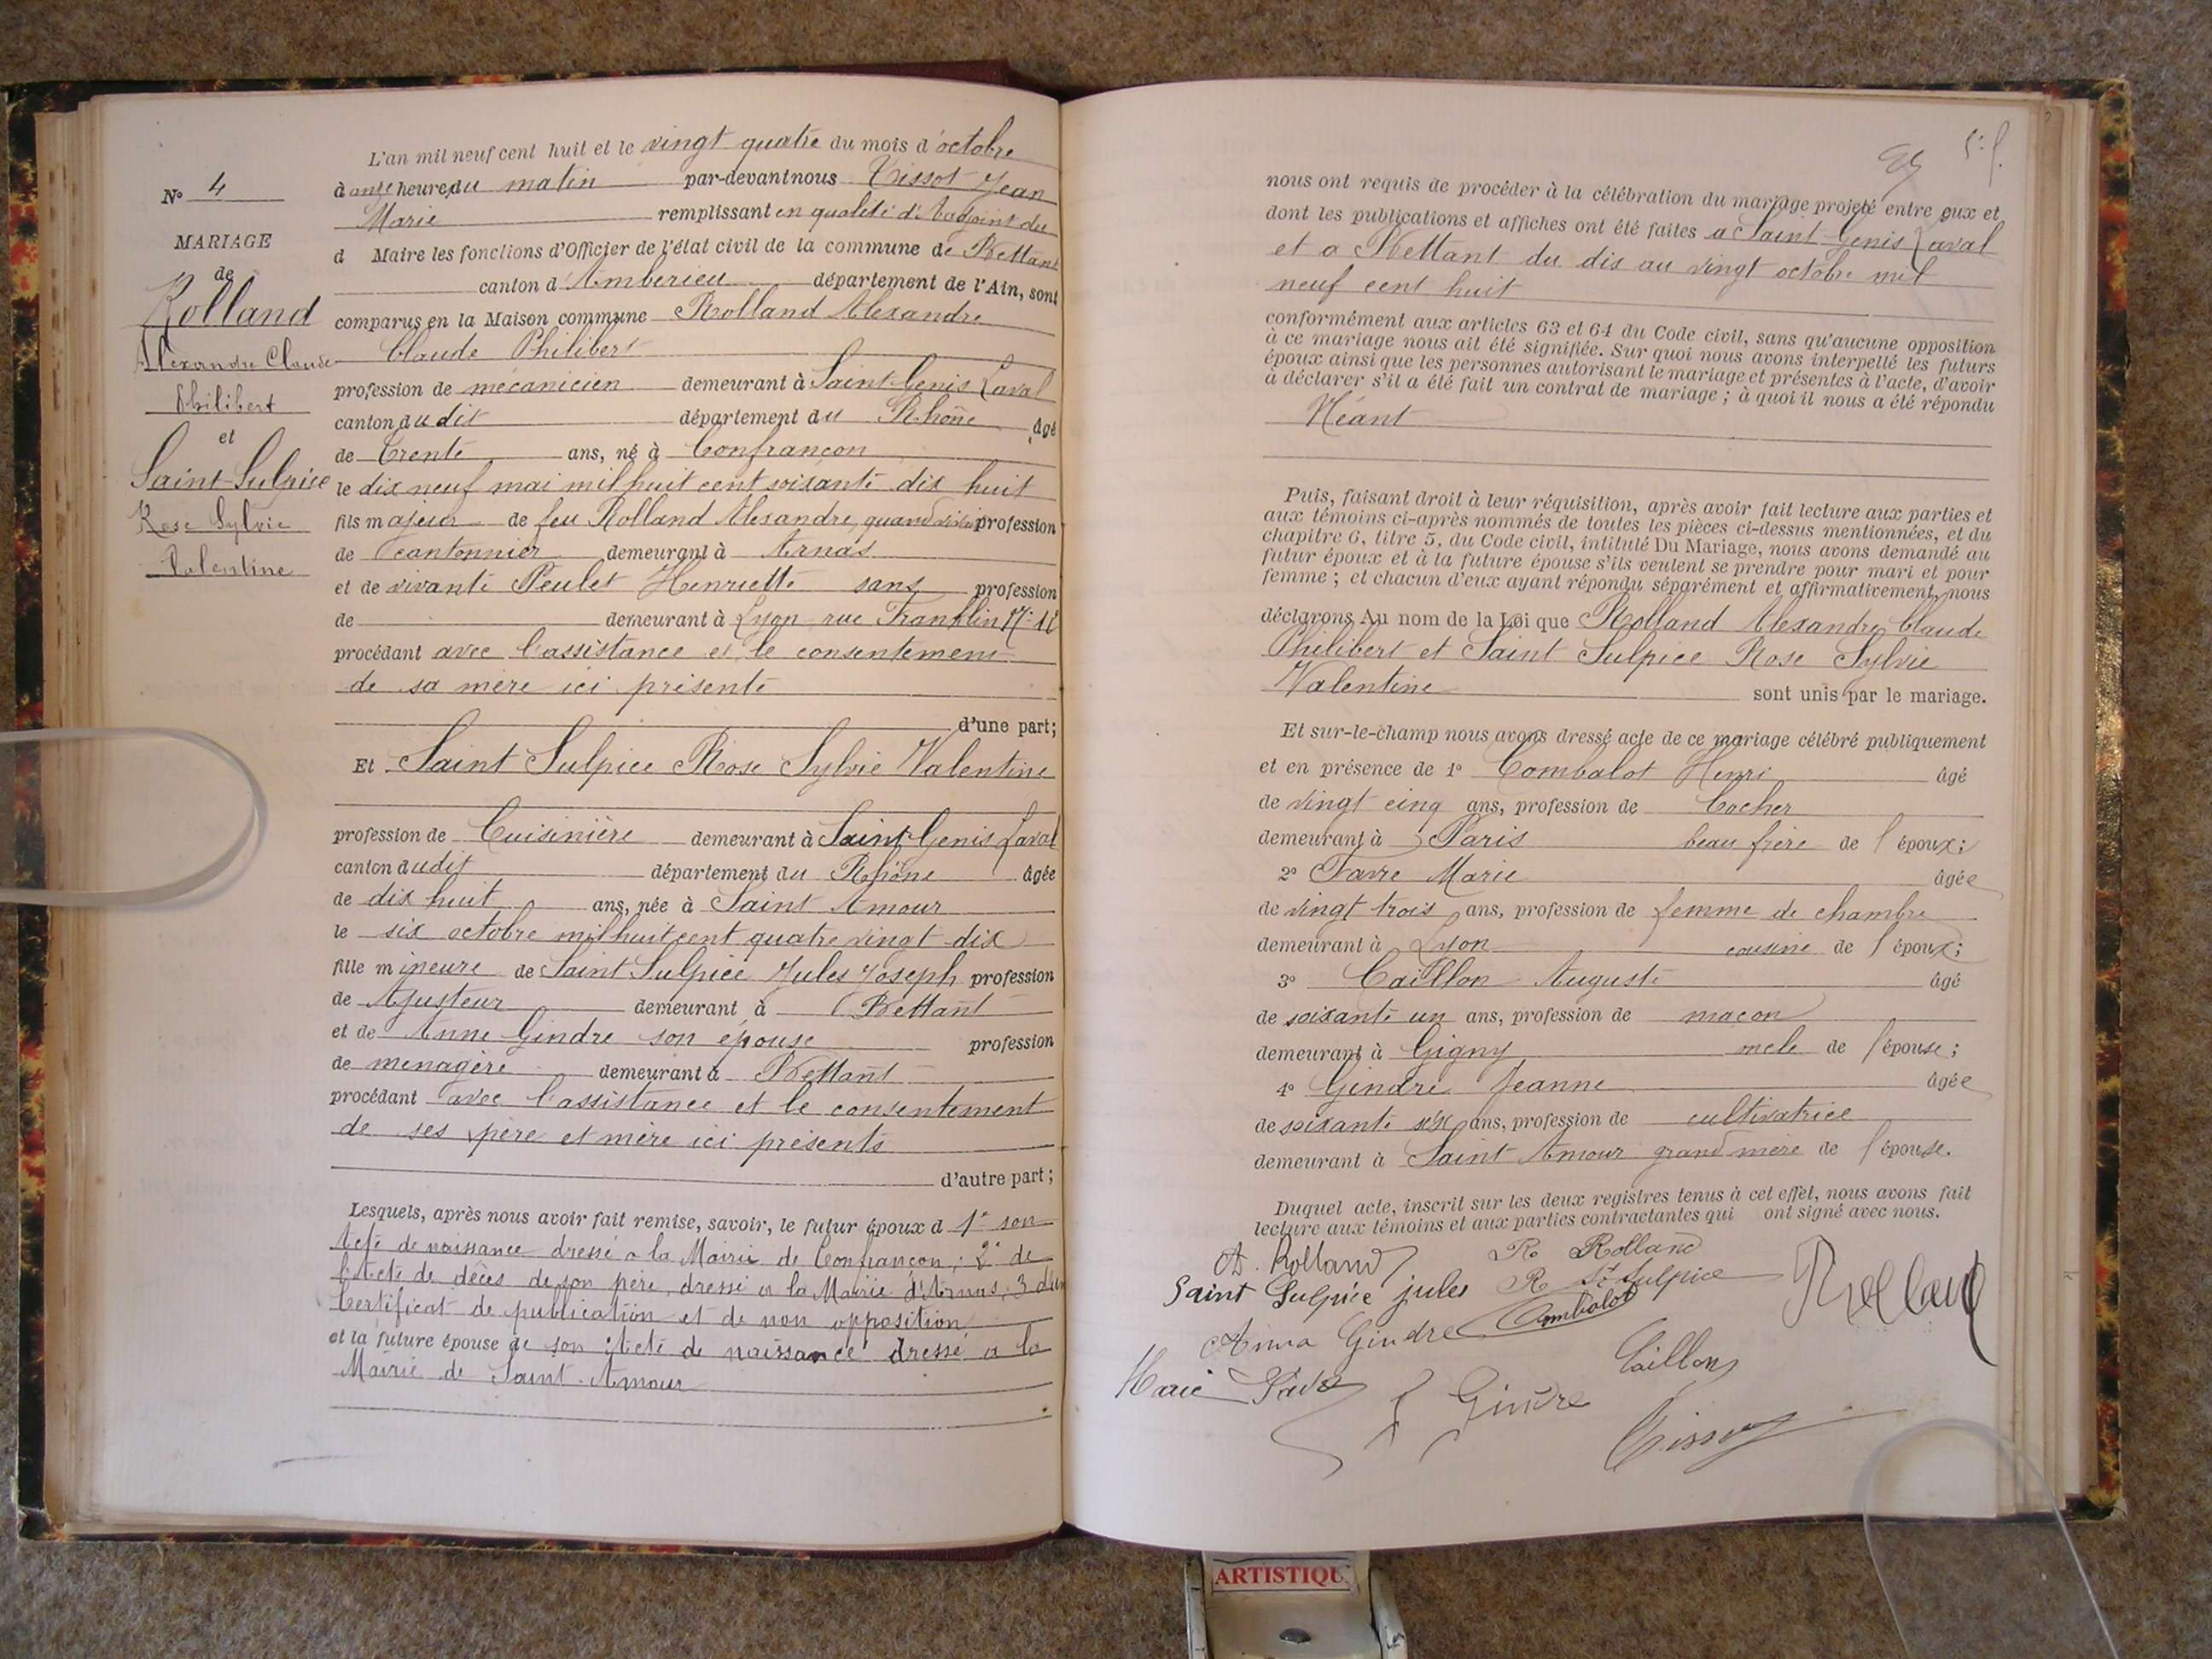 N° 4
MARIAGE
de
Rolland
Alexandre Claude
Philibert
et
Saint-Sulpice
Rose Sylvie
Valentine
L'an mil neuf cent huit et le vingt quatre du mois d'octobre
à onze heures du matin par-devant nous Tissot Jean
Marie remplissant en qualité d'Adjoint du
d Maire les fonctions d'Officier de l'état civil de la commune de Bettant
canton d'Amberieu département de l'Ain, sont
comparus en la Maison commune Rolland Alexandre
Claude Philibert
profession de mécanicien demeurant à Saint Genis Laval
canton dudit département du Rhône âgé
de trente ans, né à Confrançon
le dix neuf mai mil huit cent soixante dix huit
fils majeur de feu Rolland Alexandre, quand vivait profession
de cantonnier demeurant à Arnas
et de vivante Peulet Henriette sans profession
de demeurant à Lyon rue Franklin N°
procédant avec l'assistance et le consentement
de sa mère ici présente
d'une part;
Et Saint Sulpice Rose Sylvie Valentine
profession de Cuisinière demeurant à Saint Genis Laval
canton dudit département du Rhône âgée
de dix huit ans, née à Saint Amour
le six octobre mil huit cent quatre vingt dix
fille mineure de Saint Sulpice Jules Joseph profession
de Ajusteur demeurant à Bettant
et de Anne Gindre son épouse profession
de menagère demeurant à Bettant
procédant avec l'assistance et le consentement
de ses père et mère ici présents
d'autre part;
Lesquels, après nous avoir fait remise, savoir, le futur époux d 1° son
Acte de naissance dressé a la Mairie de Confrançon; 2° de
l'Acte de décès de son père, dressé a la Mairie d'Arnas; 3 d'un
Certificat de publication et de non opposition
et la future épouse de son Acte de naissance dressé a la
Mairie de Saint-Amour
nous ont requis de procéder à la célébration du mariage projeté entre eux et
dont les publications et affiches ont été faites a Saint Genis Laval
et a Bettant du dix au vingt octobre mil
neuf cent huit
conformément aux articles 63 et 64 du Code civil, sans qu'aucune opposition
à ce mariage nous ait été signifiée. Sur quoi nous avons interpellé les futurs
époux ainsi que les personnes autorisant le mariage et présentes à l'acte, d'avoir
à déclarer s'il a été fait un contrat de mariage; à quoi il nous a été répondu
Néant
Puis, faisant droit à leur réquisition, après avoir fait lecture aux parties et
aux témoins ci-après nommés de toutes les pièces ci-dessus mentionnées, et du
chapitre 6, titre 5, du Code civil, intitulé Du Mariage, nous avons demandé au
futur époux et à la future épouse s'ils veulent se prendre pour mari et pour
femme; et chacun d'eux ayant répondu séparément et affirmativement, nous
déclarons Au nom de la Loi que Rolland Alexandre Claude
Philibert et Saint Sulpice Rose Sylvie
Valentine sont unis par le mariage.
Et sur-le-champ nous avons dressé acte de ce mariage célébré publiquement
et en présence de 1° Combalot Henri âgé
de vingt cinq ans, profession de Cocher
demeurant à Paris beau frère de l'époux;
2° Favre Marie âgée
de vingt trois ans, profession de femme de chambre
demeurant à Lyon cousine de l'époux;
3° Caillon Auguste âgé
de soixante un ans, profession de maçon
demeurant à Gigny oncle de l'épouse;
4° Gindre Jeanne âgée
de soixante six ans, profession de cultivatrice
demeurant à Saint Amour grand mère de l'épouse.
Duquel acte, inscrit sur les deux registres tenus à cet effet, nous avons fait
lecture aux témoins et aux parties contractantes qui ont signé avec nous.
A. Rolland R Rolland
Saint Sulpice jules R St Sulpice Rolland
Anna Gindre Combalot
Marie Favre Gindre Caillon
Tissot
ARTISTIQU